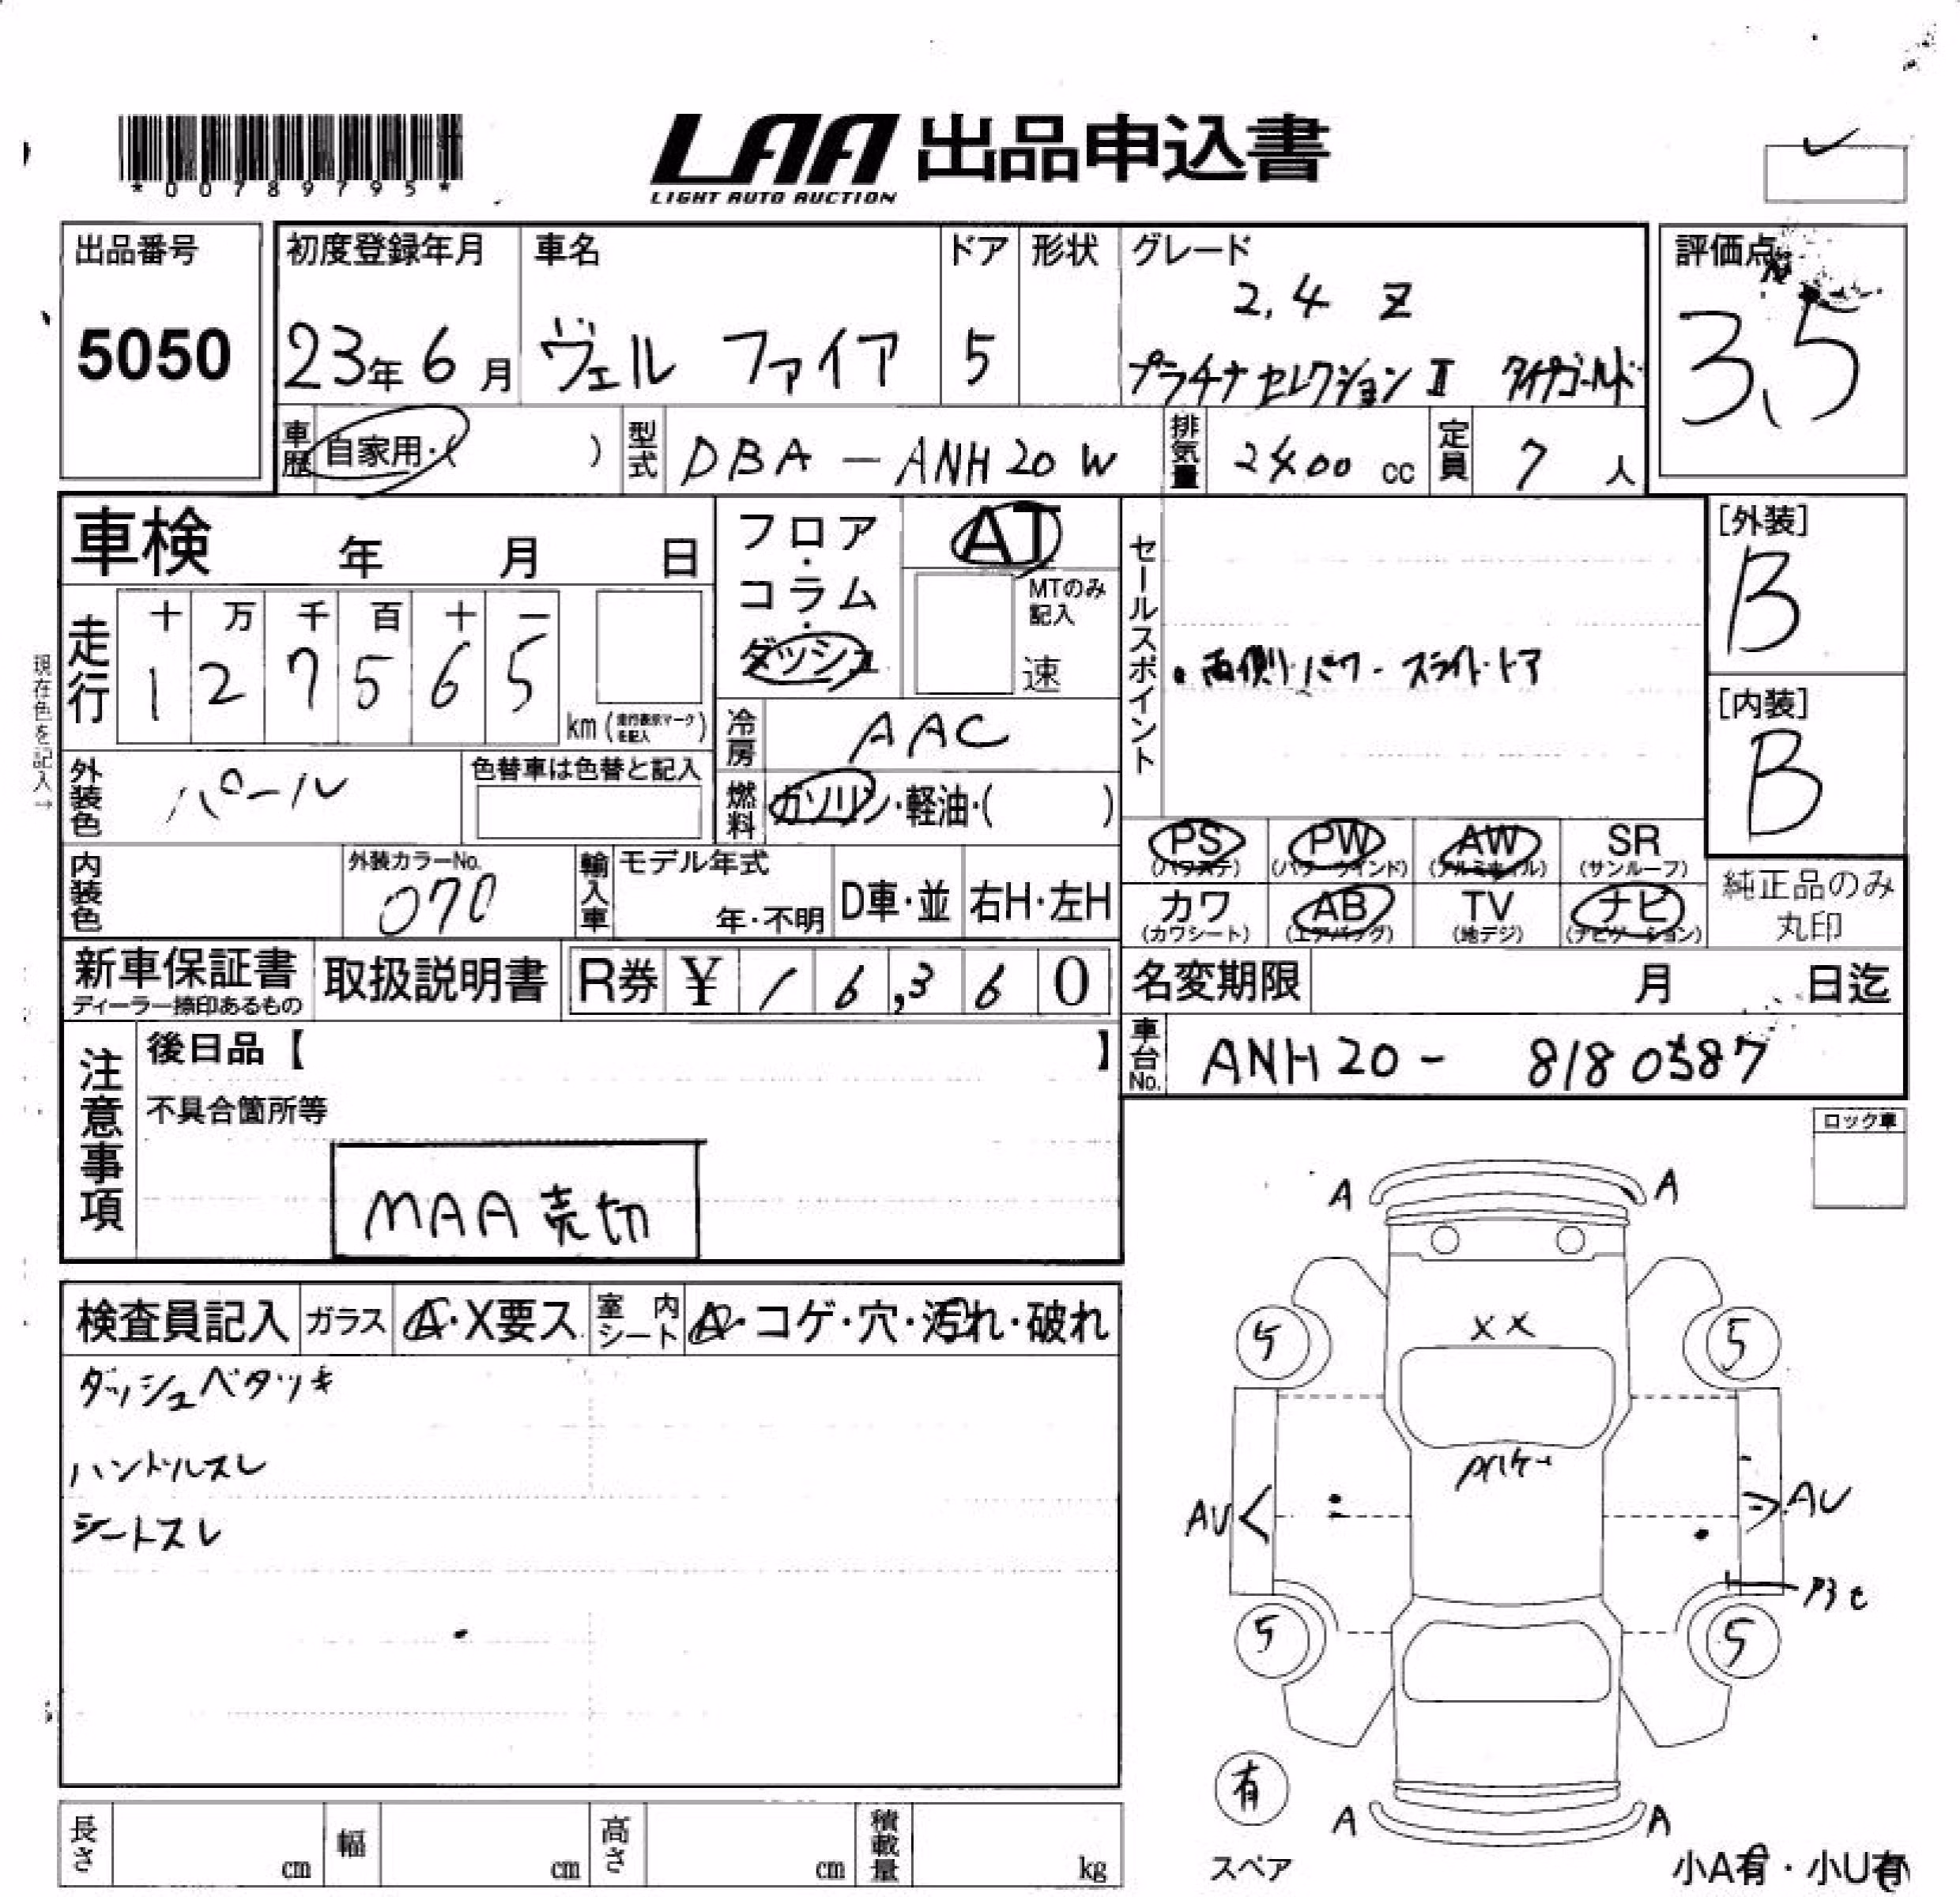 *00789795*
LAA 出品申込書
LIGHT AUTO AUCTION
出品番号
5050
初度登録年月
23年6月
車名
ヴェルファイア
ドア
5
形状
グレード
2.4 Z
プラチナセレクションⅡ タイプゴールド
評価点
3.5
車歴
自家用・( )
型式
DBA-ANH20W
排気量
2400 cc
定員
7 人
車検 年 月 日
フロア・コラム・ダッシュ
AT
MTのみ記入
速
現在色を記入→
走行
十 万 千 百 十 一
1 2 7 5 6 5
km (走行表示マークを記入)
冷房
AAC
セールスポイント
・両側パワースライドドア
[外装]
B
[内装]
B
外装色
パール
色替車は色替と記入
燃料
ガソリン・軽油・( )
PS (パワステ)
PW (パワーウインド)
AW (アルミホイル)
SR (サンルーフ)
カワ (カワシート)
AB (エアバッグ)
TV (地デジ)
ナビ (ナビゲーション)
純正品のみ
丸印
内装色
外装カラーNo.
070
輸入車
モデル年式
年・不明
D車・並
右H・左H
新車保証書
ディーラー捺印あるもの
取扱説明書
R券 ¥16,360
名変期限 月 日迄
車台No.
ANH20-8180587
注意事項
後日品【 】
不具合箇所等
MAA売切
ロック車
検査員記入
ガラス
A・X要ス
室内シート
A・コゲ・穴・汚れ・破れ
ダッシュベタツキ
ハンドルスレ
シートスレ
A A
XX
5 5
AV AV
5 5
有
スペア
A A
小A有・小U有
長さ cm
幅 cm
高さ cm
積載量 kg